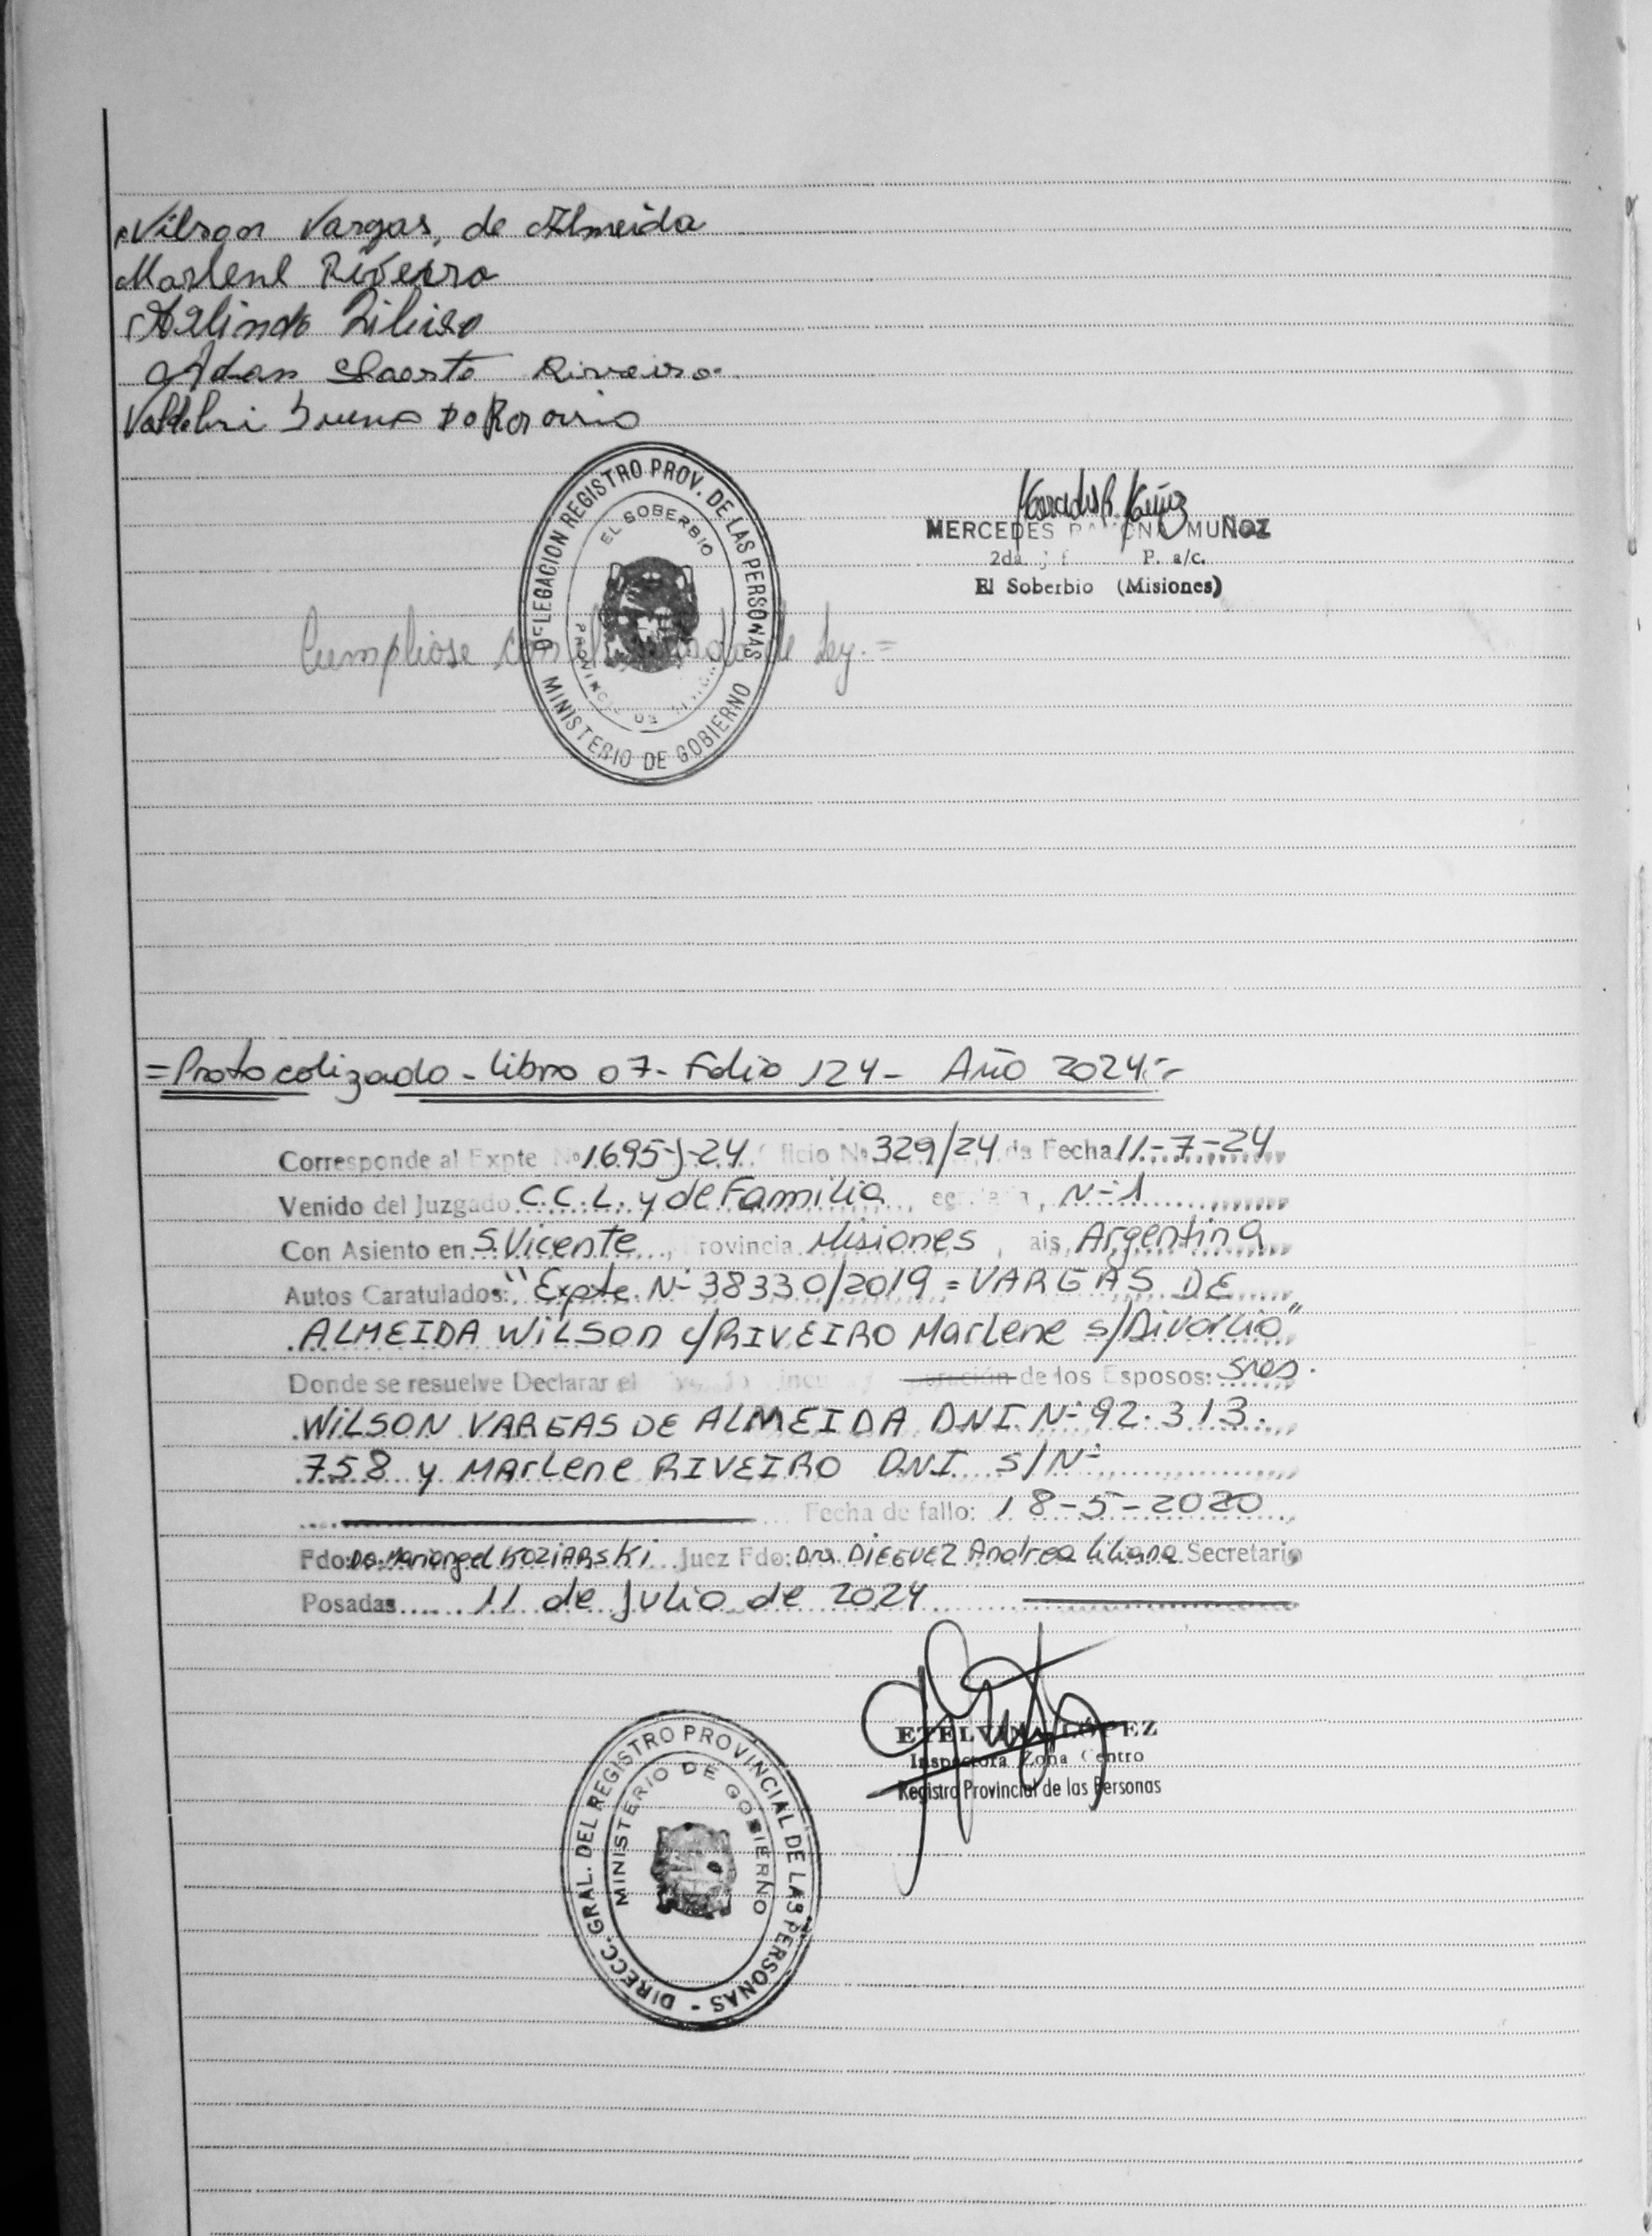 Wilson Vargas, de Almeida
Marlene Riveiro
Arlindo
Adan Riveiro
Do Rosario
DELEGACION REGISTRO PROV. DE LAS PERSONAS
MINISTERIO DE GOBIERNO
EL SOBERBIO
PROVINCIA DE
MERCEDES RAMONA MUÑOZ
2da. P. a/c.
El Soberbio (Misiones)
Cumpliose con de Ley.=
=Protocolizado-Libro 07-Folio 124- Año 2024=-
Corresponde al Expte Nº 1695-J-24 Oficio Nº 329/24 de Fecha 11-7-24
Venido del Juzgado C.C.L. y de Familia, N-º1
Con Asiento en S.Vicente, Provincia Misiones, Pais Argentina
Autos Caratulados: "Expte. N-º38330/2019=VARGAS DE
ALMEIDA WILSON c/RIVEIRO Marlene s/Divorcio"
Donde se resuelve Declarar el de los Esposos: Sres.
WILSON VARGAS DE ALMEIDA DNI. N-º92.313.
758 y MARLENE RIVEIRO DNI S/Nº
Fecha de fallo: 18-5-2020
Fdo: Mariangel KOZIARSKI Juez Fdo: Dra DIEGUEZ Andrea Liliana Secretario
Posadas 11 de Julio de 2024
ETELVINA LÓPEZ
Inspectora Zona Centro
Registro Provincial de las Personas
DIRECC. GRAL. DEL REGISTRO PROVINCIAL DE LAS PERSONAS -
MINISTERIO DE GOBIERNO